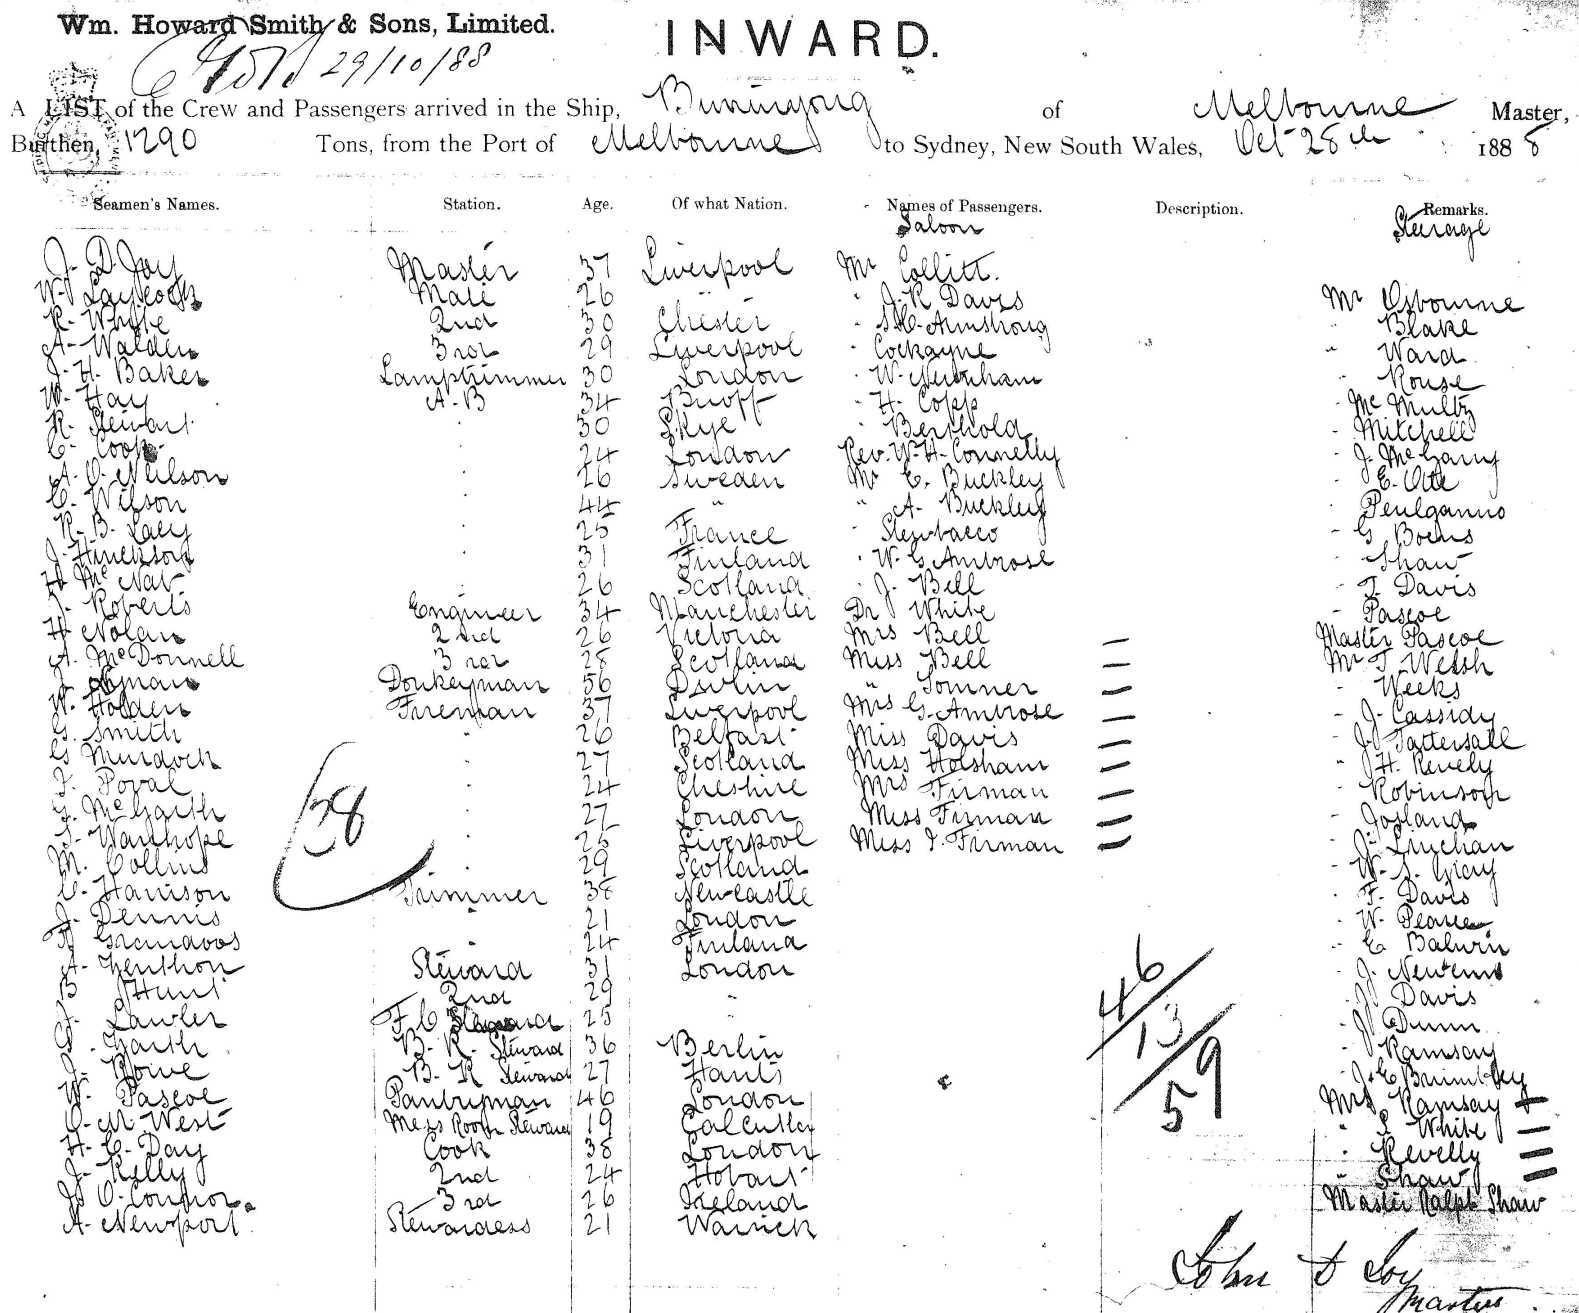 Wm. Howard Smith & Sons, Limited.
INWARD.
29/10/88
A LIST of the Crew and Passengers arrived in the Ship, Buninyong of Melbourne Master,
Burthen, 1290 Tons, from the Port of Melbourne to Sydney, New South Wales, Oct 28th 1888
Seamen's Names. Station. Age. Of what Nation. Names of Passengers. Description. Remarks.
Saloon Steerage
J. D. Joy Master 37 Liverpool Mr Collitt.
W. Laycock Mate 26 " J. R Davis Mr Osbourne
R. Whyte 2nd 30 Chester " Armstrong " Blake
A. Walden 3rd 29 Liverpool " Cockayne " Ward
J. H. Baker Lamptrimmer 30 London " W. Newnham " Rouse
W. Hay A.B 34 " H. Copp " Mc Multy
R. Stewart " 30 Skye " Berthold " Mitchell
C. Cook " 24 London Rev. W. H. Connelly " J. McGarry
A. O. Neilson " 26 Sweden Mr C. Buckley " E. Otte
C. Wilson " 44 " " A. Buckley
R. B. Lacy " 25 France " G Boens
J. Hinckson " 31 Finland " W. G. Ambrose " Shaw
H Mc Nab " 26 Scotland " J. Bell " T. Davis
J. Roberts Engineer 34 Manchester Dr White " Pascoe
H. Nolan 2nd 26 Victoria Mrs Bell — Master Pascoe
A. McDonnell 3rd 28 Scotland Miss Bell — Mr T. Welsh
Donkeyman 56 Dublin " Tomner — " Weeks
W. Holden Fireman 37 Liverpool Mrs G. Ambrose — " J. Cassidy
G. Smith " 26 Belfast Miss Davis — " J. Tattersall
G. Murdock " 27 Scotland Miss Holsham — " J H. Revely
J. Poval " 24 Cheshire Mrs Firman — " Robinson
G. McGarth " 27 London Miss Firman — " Josland
S. Wanhope " 25 Liverpool Miss J. Firman — " J. Linehan
M. Collins " 29 Scotland " W. S. Gray
C. Harrison Trimmer 38 Newcastle " F. Davis
J. Dennis " 21 London " W. Pearce
Grandoos " 24 Finland " C Balwin
A. Zenthon Steward 31 London " J. Newtems
B Hunt 2nd 29 " " J. Davis
J. Lawler F. C 25 " " J Dunn
J. Garth B. R. Steward 36 Berlin " Ramsay
J. Rowe B. R Steward 27 Hants " J. C Brimbley
W. Pascoe Pantryman 46 London Mrs Ramsay
C. M West Mess Room Steward 19 Calcutta " White —
H. C. Day Cook 38 London " Revelly —
J. Kelly 2nd 24 Hobart " Shaw —
J. O. Connor 3rd 26 Ireland Master Ralph Shaw
A. Newport Stewardess 21 Warrick
38
46
13
59
John D Joy
Master